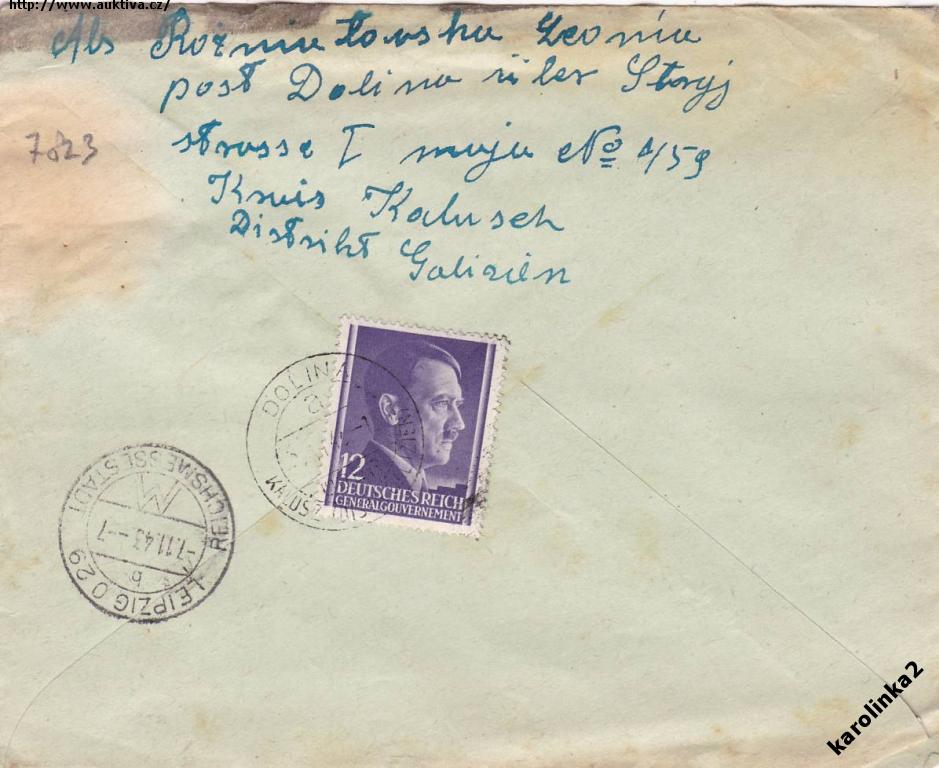 http://www.auktiva.cz/
Abs Rożniatowska Leonia
post Dolina über Stryj
strasse I maja No 1/59
7823
Kreis Kalusch
Distrikt Galizien
DOLINA
12
DEUTSCHES REICH
GENERALGOUVERNEMENT
REICHSMESSESTADT
M
-7.11.43.--7
b
LEIPZIG O 29
karolinka2